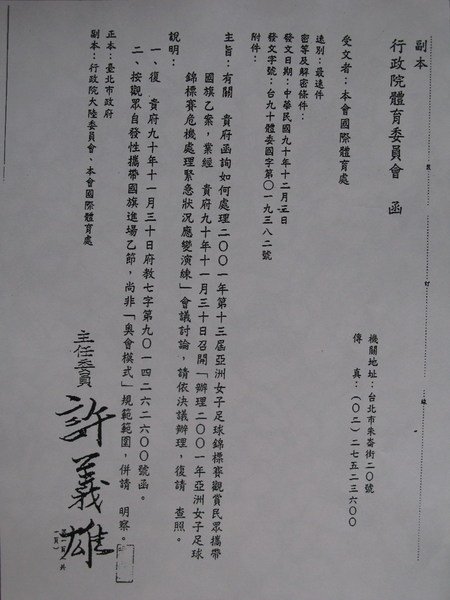 副本
行政院體育委員會　函
機關地址：台北市朱崙街二０號
傳　真：（０二）二七五二三六００
受文者：本會國際體育處
速別：最速件
密等及解密條件：
發文日期：中華民國九十年十二月三日
發文字號：台九十體委國字第０一九三八二號
附件：
主旨：有關　貴府函詢如何處理二００一年第十三屆亞洲女子足球錦標賽觀賞民眾攜帶
國旗乙案，業經　貴府九十年十一月三十日召開「辦理二００一年亞洲女子足球
錦標賽危機處理緊急狀況應變演練」會議討論，請依決議辦理，復請　查照。
說明：
一、復　貴府九十年十一月三十日府教七字第九０一四二六二六００號函。
二、按觀眾自發性攜帶國旗進場乙節，尚非「奧會模式」規範範圍，併請　明察。
正本：臺北市政府
副本：行政院大陸委員會、本會國際體育處
主任委員　許義雄
裝
訂
線